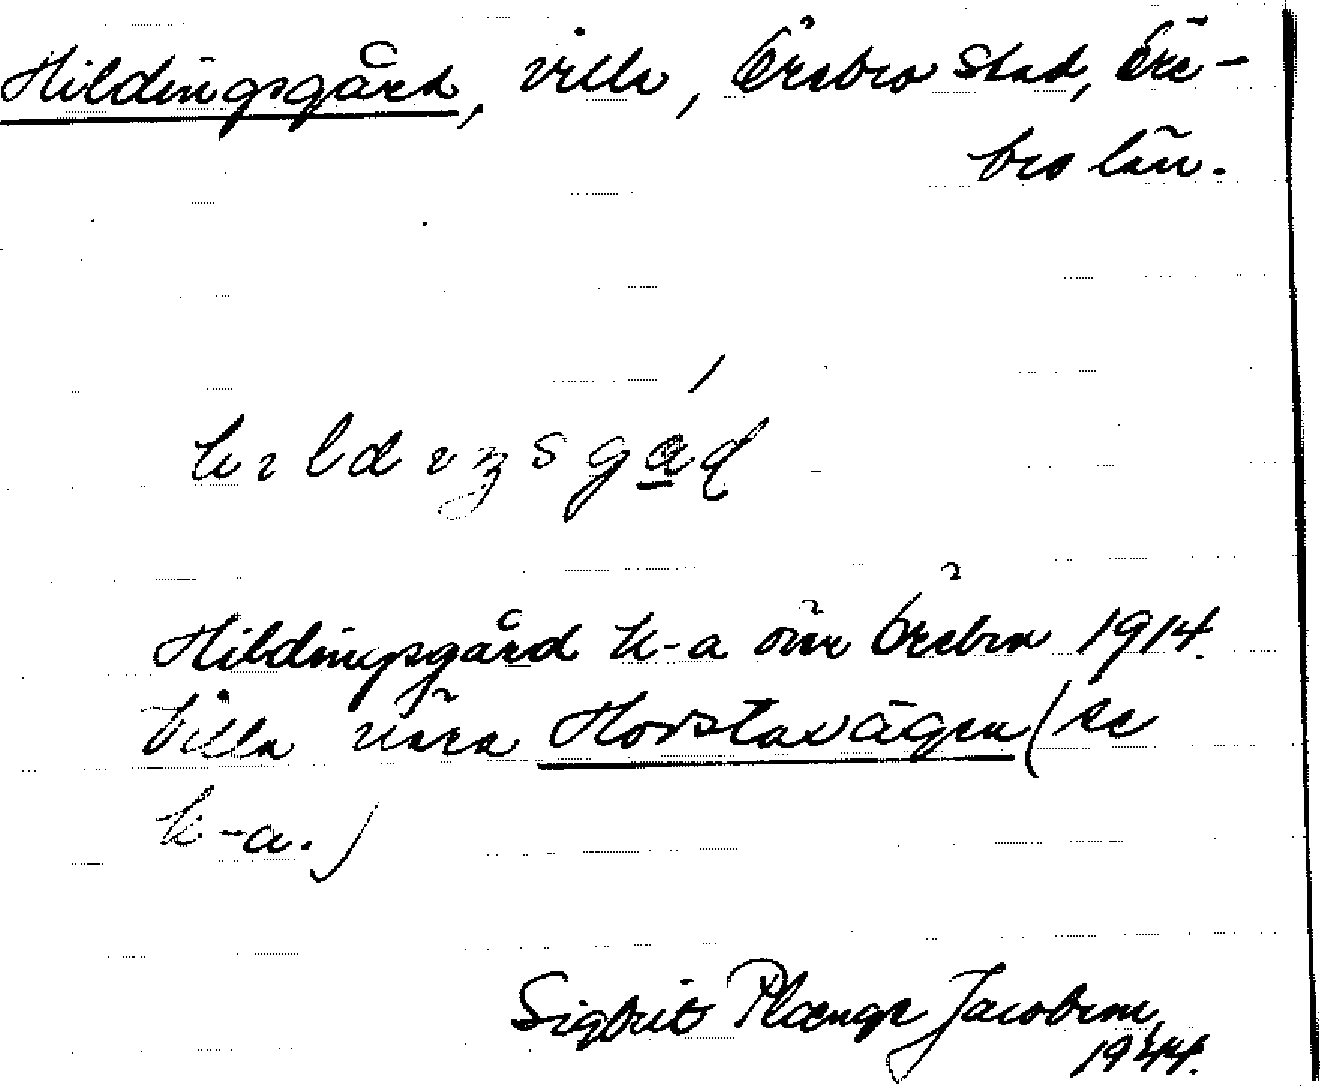 Hildingsgård, villa, Örebro stad, Öre-
bro län.
hıldıŋsgɑ́ɖ
Hildingsgård k-a över Örebro 1914.
Villa nära Hovstavägen (se
k-a.)
Sigbrit Plænge Jacobson,
1944.